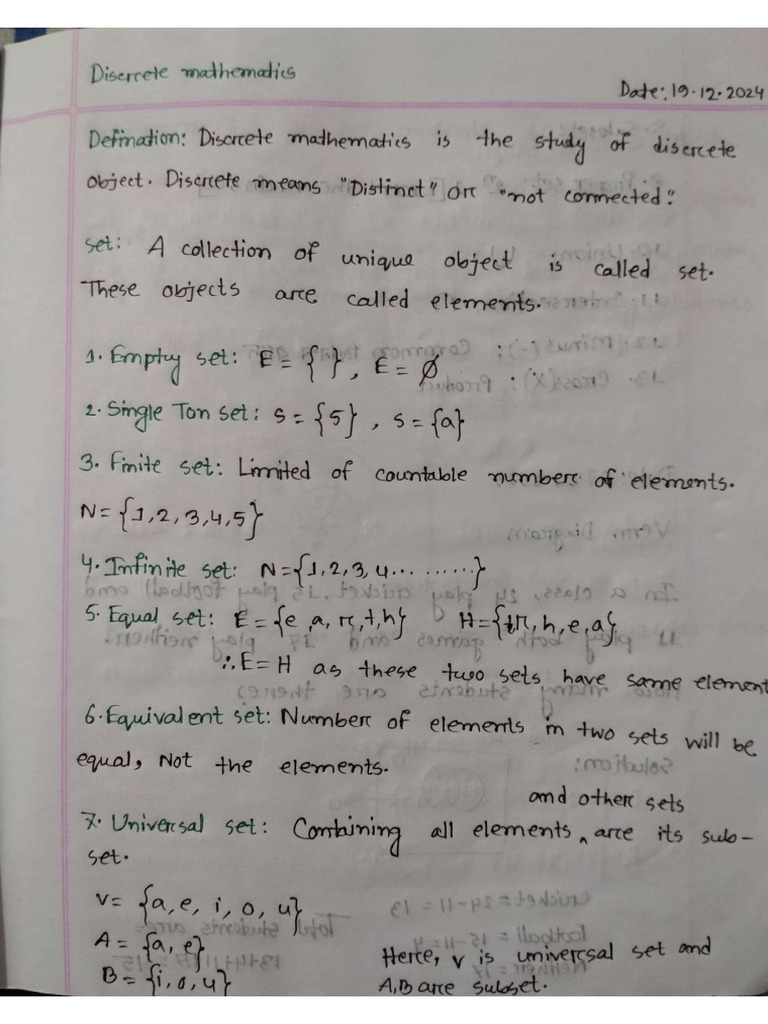 Discrete mathematics
Date: 19.12.2024
Defination: Discrete mathematics is the study of discrete
object. Discrete means "Distinct" or "not connected".
set: A collection of unique object is called set.
These objects are called elements.
1. Empty set: E = { }, E = Ø
2. Single Ton set: S = {5}, S = {a}
3. Finite set: Limited of countable numbers of elements.
N = {1,2,3,4,5}
4. Infinite set: N = {1,2,3,4..........}
5. Equal set: E = {e,a,r,t,h} H = {t,r,h,e,a}
∴ E = H as these two sets have same element
6. Equivalent set: Number of elements in two sets will be
equal, Not the elements.
and other sets
7. Universal set: Combining all elements ^ are its sub-
set.
V = {a, e, i, o, u}
A = {a, e}
B = {i, o, u}
Here, V is universal set and
A,B are subset.